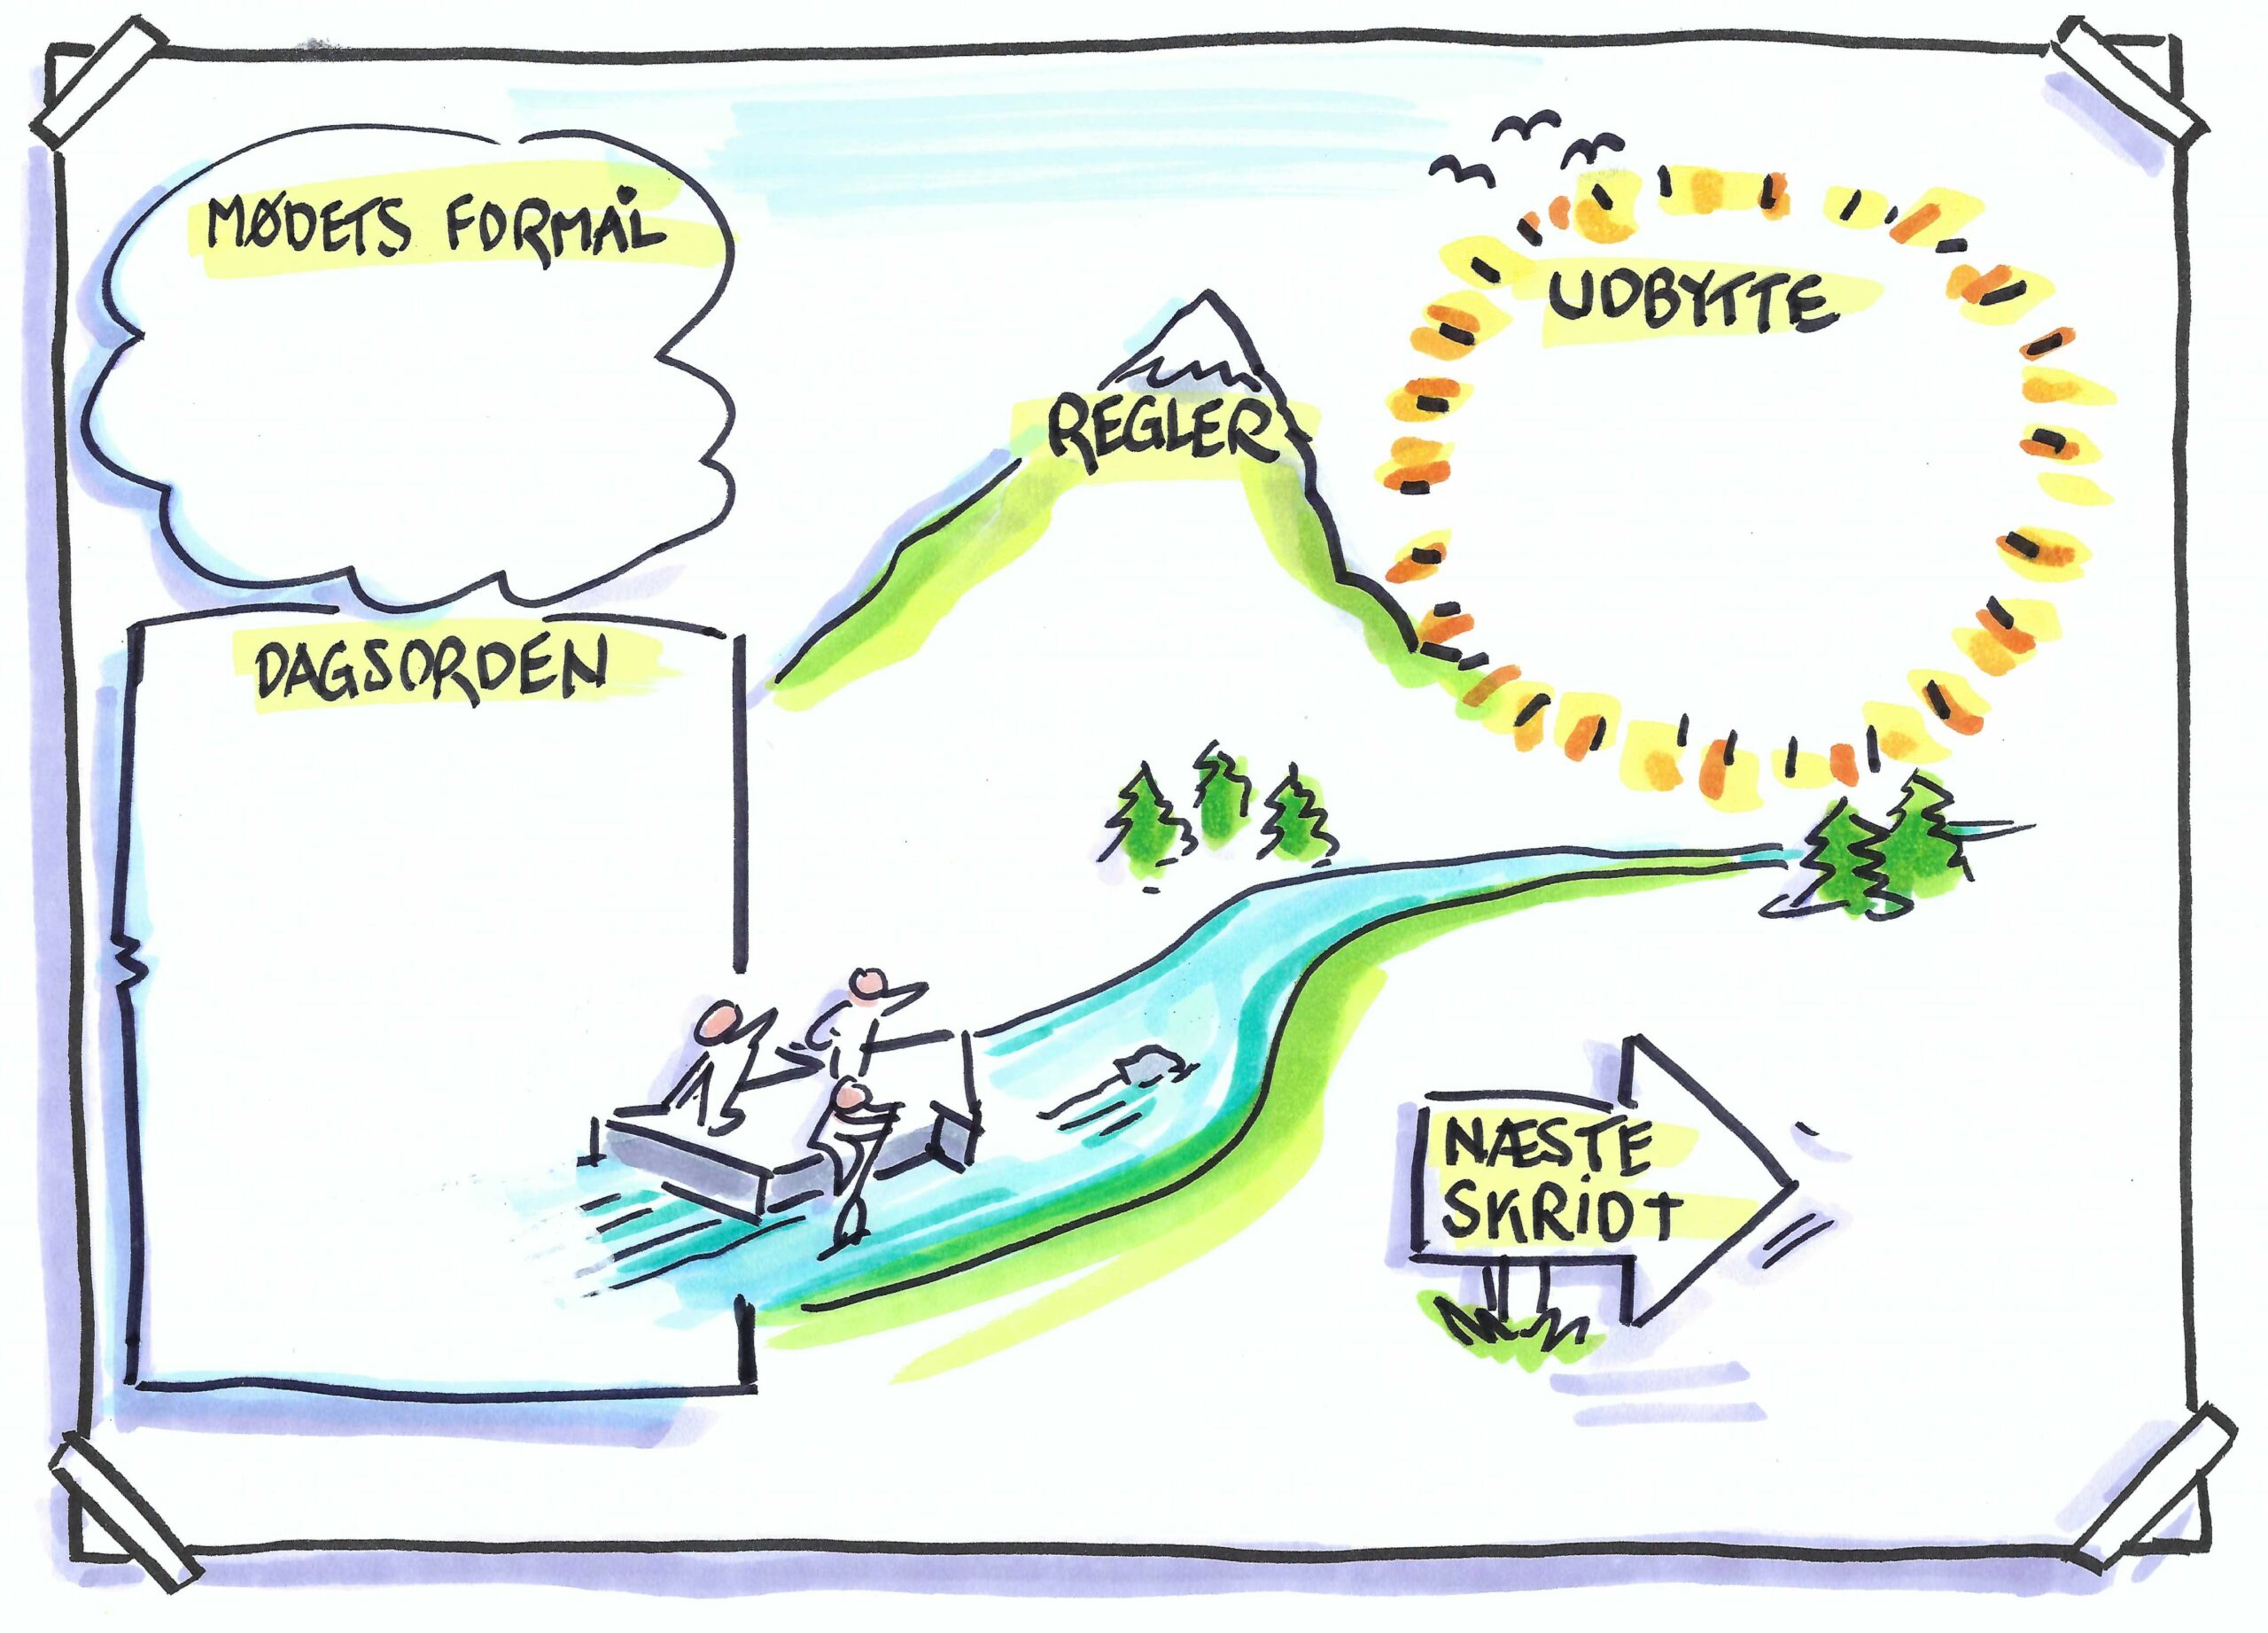 MØDETS FORMÅL
UDBYTTE
REGLER
DAGSORDEN
NÆSTE
SKRIDT